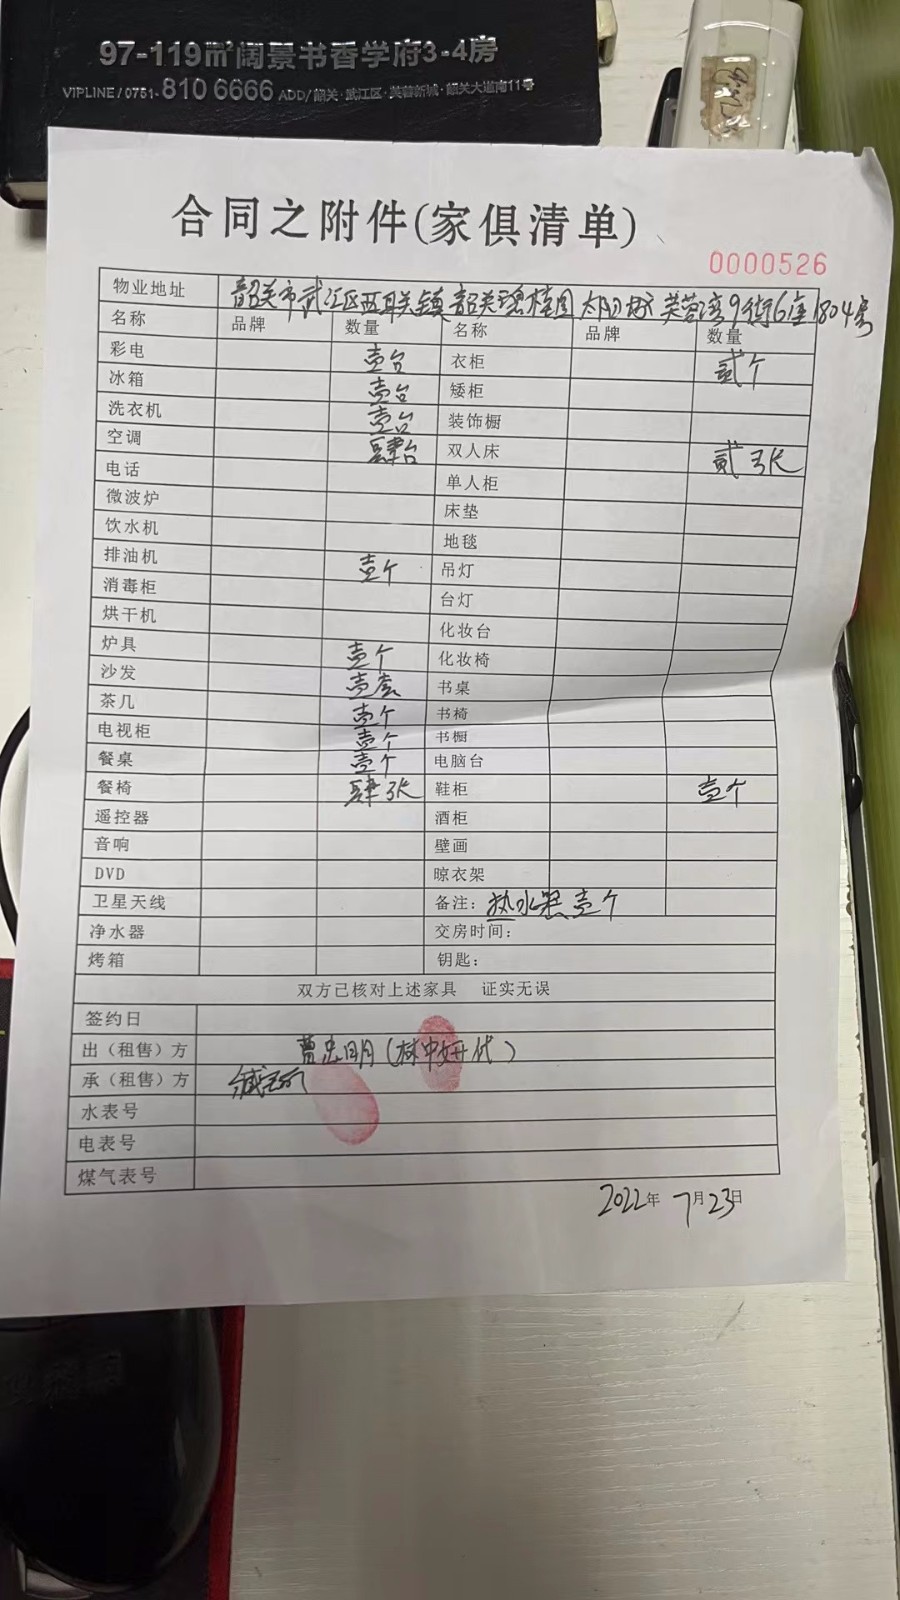 97-119㎡阔景书香学府3-4房
VIPLINE/0751-810 6666 ADD/韶关·武江区·芙蓉新城·韶关大道南11号
合同之附件(家俱清单)
0000526
物业地址 韶关市武江区西联镇韶关碧桂园太阳城芙蓉湾9街6座1804房
名称 品牌 数量 名称 品牌 数量
彩电 壹台 衣柜 贰个
冰箱 壹台 矮柜
洗衣机 壹台 装饰橱
空调 肆台 双人床 贰张
电话 单人柜
微波炉 床垫
饮水机 地毯
排油机 壹个 吊灯
消毒柜 台灯
烘干机 化妆台
炉具 壹个 化妆椅
沙发 壹套 书桌
茶几 壹个 书椅
电视柜 壹个 书橱
餐桌 壹个 电脑台
餐椅 肆张 鞋柜 壹个
遥控器 酒柜
音响 壁画
DVD 晾衣架
卫星天线 备注：热水器壹个
净水器 交房时间：
烤箱 钥匙：
双方已核对上述家具 证实无误
签约日
出（租售）方 曹忠明(林中妍代)
承（租售）方
水表号
电表号
煤气表号
2022年 7月23日